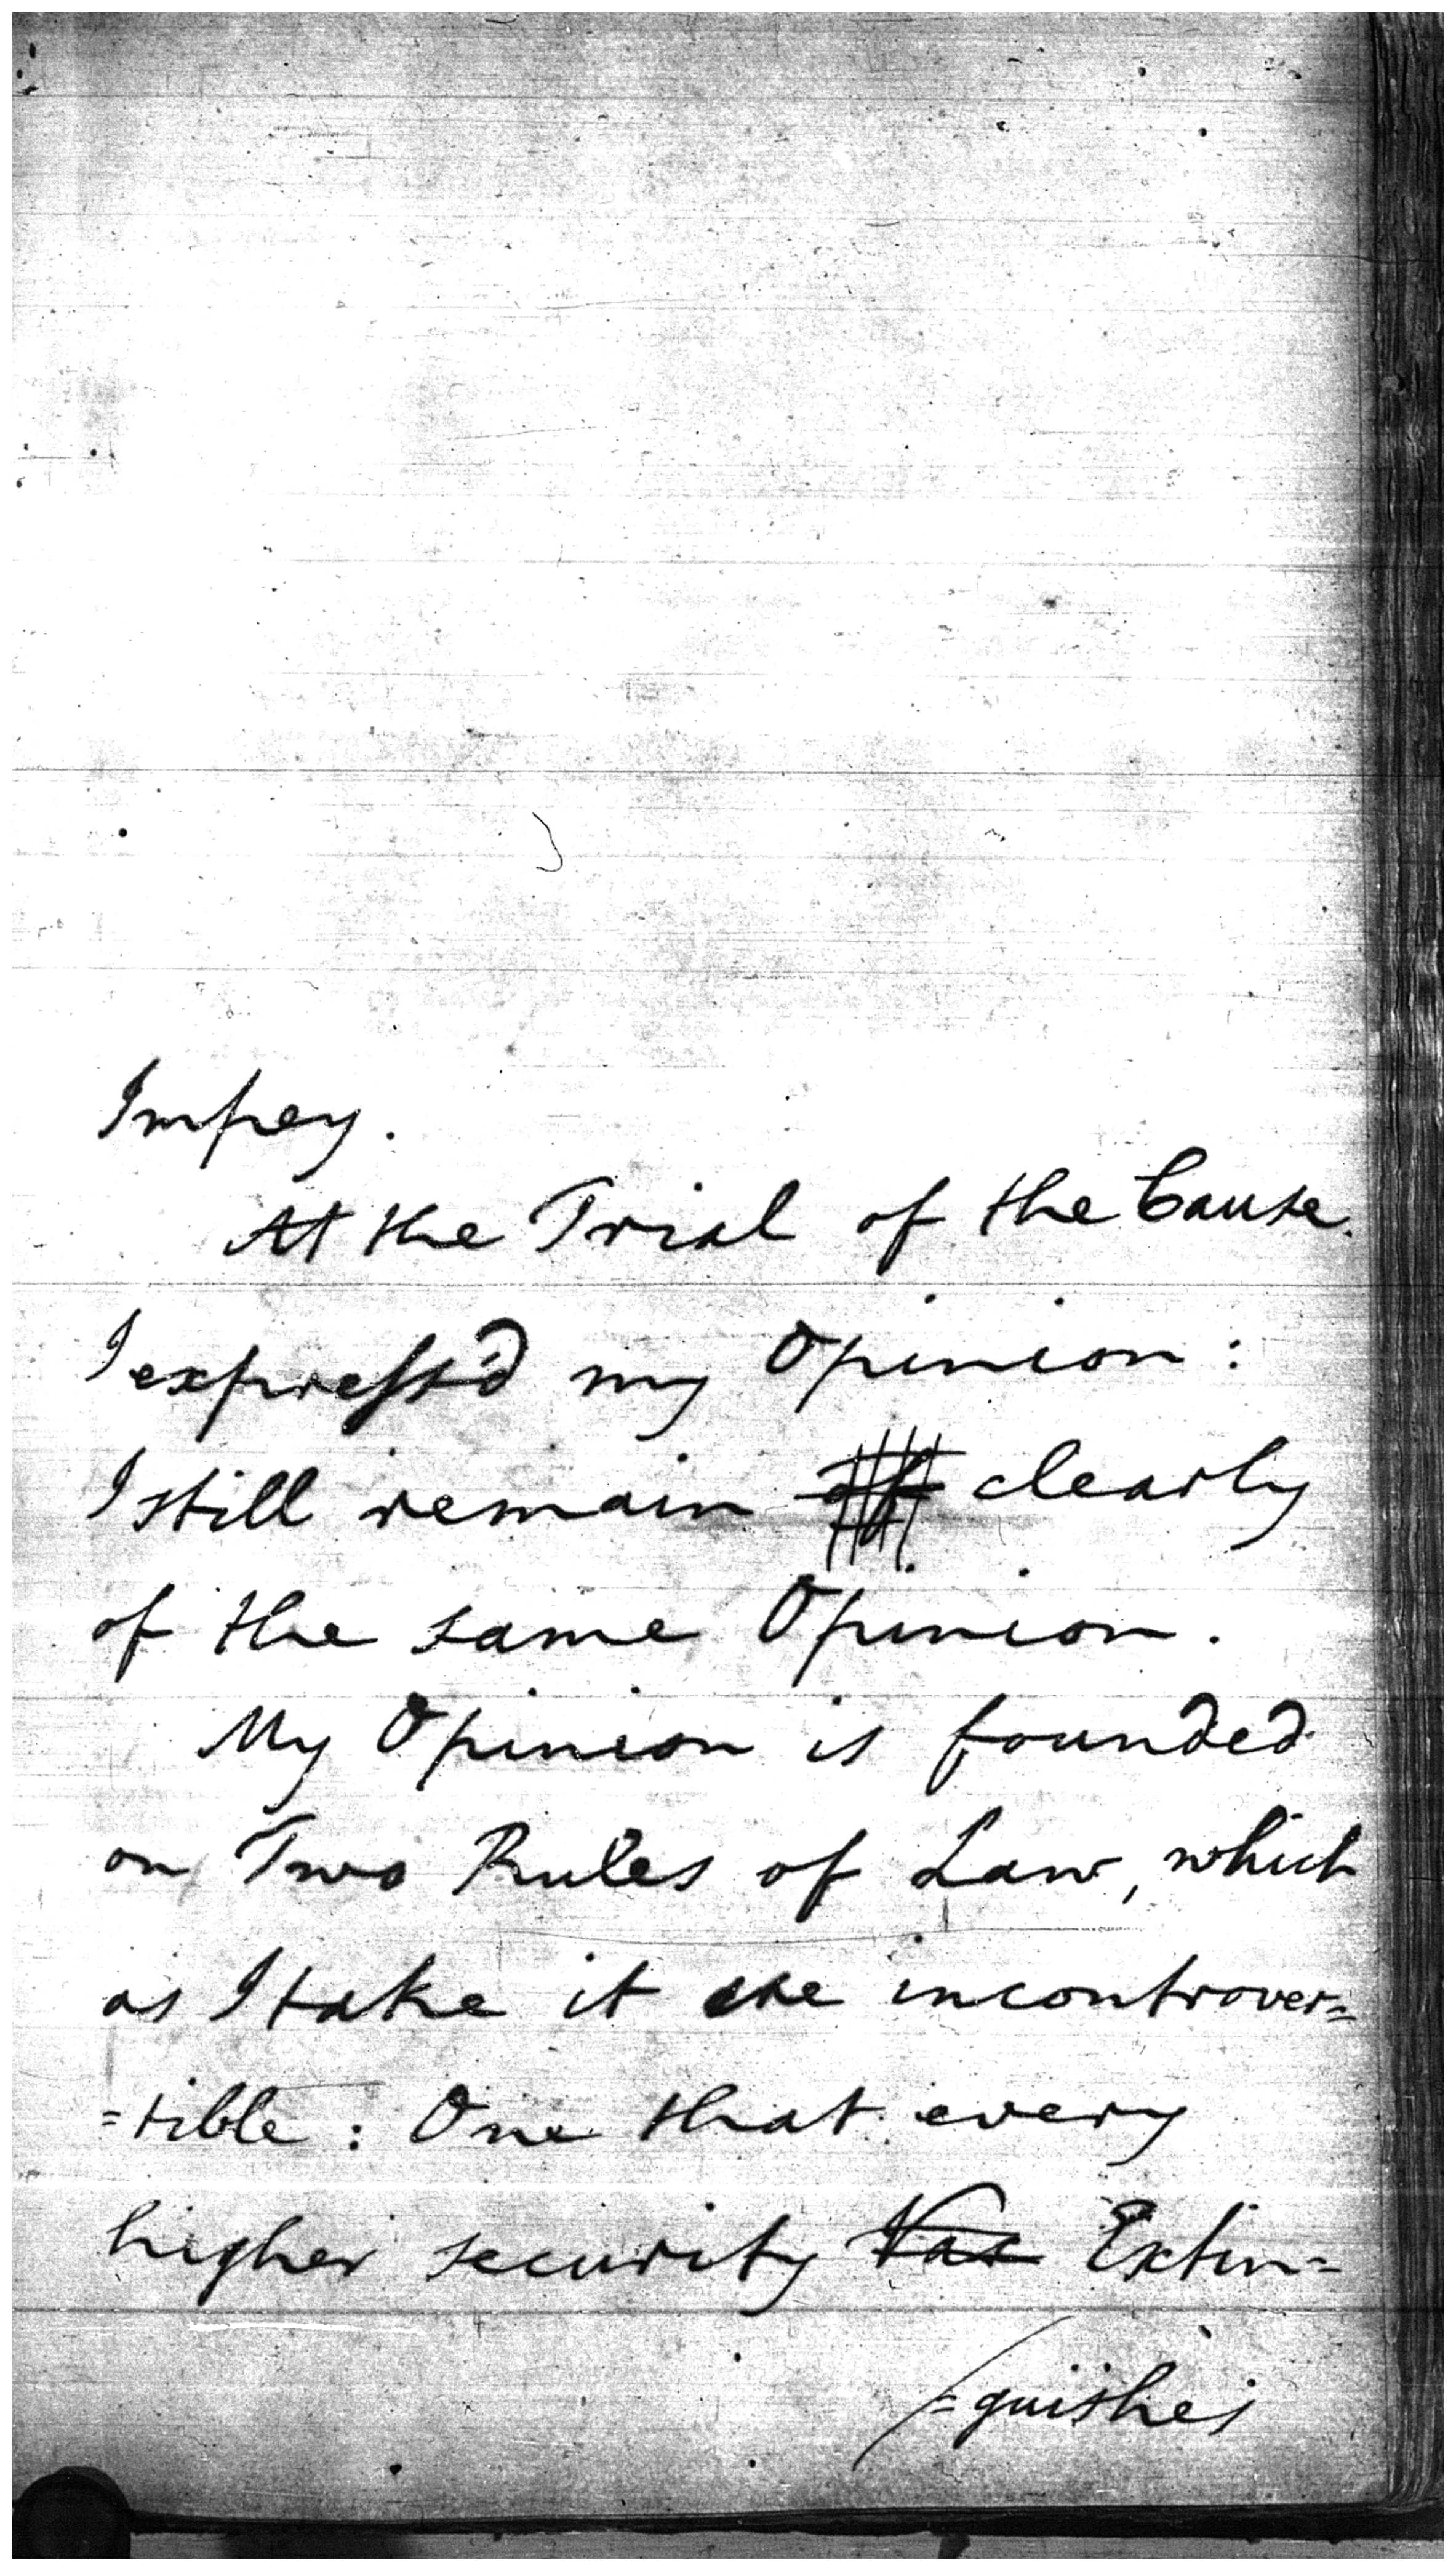 Impey.
At the Trial of the Cause
I express'd my Opinion:
I still remain clearly
of the same Opinion.
My Opinion is founded
on Two Rules of Law, which
as I take it are incontrover=
=tible: One that every
higher security Extin=
=guishes